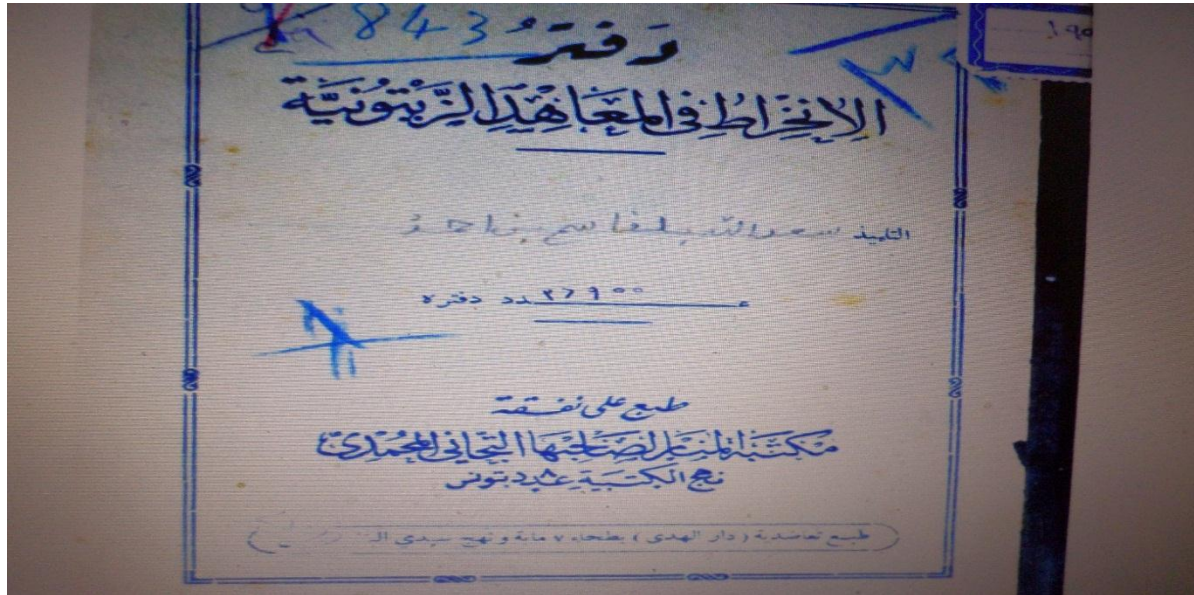 843
دفتر
الانخراط في المعاهد الزيتونية
التلميذ سعد الله بلقاسم بن احمد
عدد دفتره ٢٦٩٠٠
طبع على نفقة
مكتبة المنار لصاحبها التجاني المحمدي
نهج الكتبية عدد بتونس
طبع تعاضدية (دار الهدى) بطحاء ٧ ماية ونهج سيدي